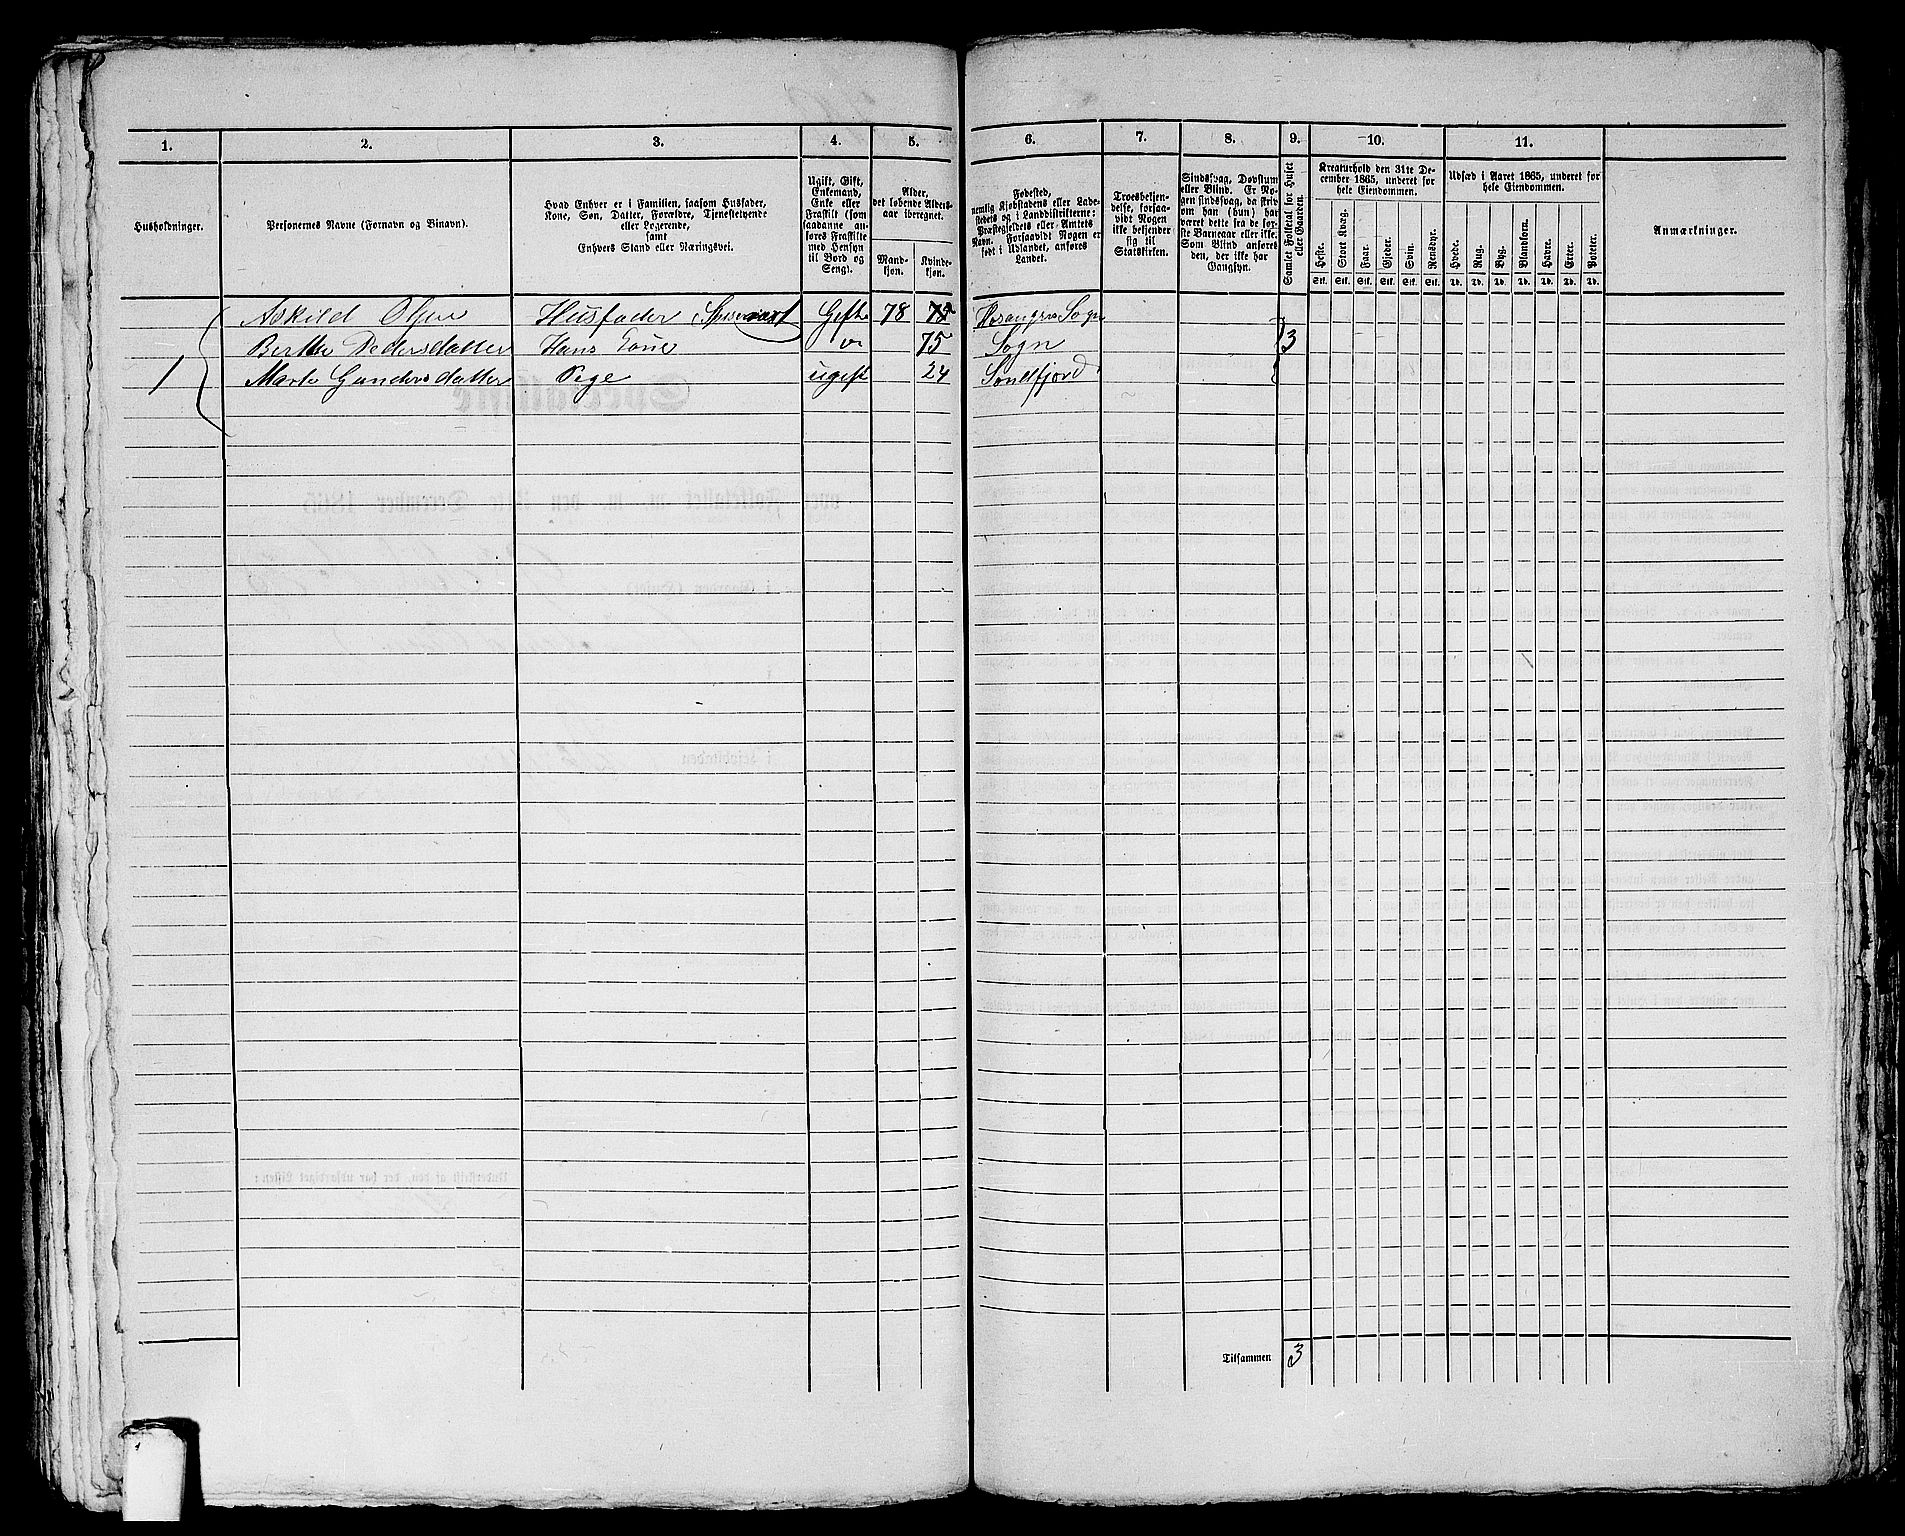 1. 2. 3. 4. 5. 6. 7. 8. 9. 10. 11.
Husholdninger.
Personernes Navne (Fornavn og Binavn).
Hvad Enhver er i Familien, saasom Husfader,
Kone, Søn, Datter, Forældre, Tjenestetyende
eller Logerende,
samt
Enhvers Stand eller Næringsvei.
Ugift, Gift,
Enkemand,
Enke eller
Fraskilt (som
saadanne an-
føres Fraskilte
med Hensyn
til Bord og
Seng).
Alder,
det løbende Alders-
aar iberegnet.
Mand-
kjøn.
Kvinde-
kjøn.
Fødested,
nemlig Kjøbstadens eller Lade-
stedets og i Landdistrikterne:
Præstegjeldets eller Amtets
Navn. Forsaavidt Nogen er
født i Udlandet, anføres
Landet.
Troesbekjen-
delse, forsaa-
vidt Nogen
ikke bekjender
sig til
Statskirken.
Sindssvag, Døvstum
eller Blind. Er No-
gen sindssvag, da skriv
om han (hun) har
været dette fra de før-
ste Barneaar eller ikke.
Som Blind anføres
den, der ikke har
Gangsyn.
Samlet Folketal for Huset
eller Gaarden.
Kreaturhold den 31te De-
cember 1865, underet for
hele Eiendommen.
Heste.
Stort Kvæg.
Faar.
Gjeder.
Svin.
Rensdyr.
Stk. Stk. Stk. Stk. Stk. Stk.
Udsæd i Aaret 1865, underet for
hele Eiendommen.
Hvede.
Rug.
Byg.
Blandkorn.
Havre.
Erter.
Poteter.
Td. Td. Td. Td. Td. Td. Td.
Anmærkninger.
Askild Olsen Husfader Gift 78 75 Sogn
Berthe Pedersdatter Hans Kone " 75 Sogn 3
1 Marte Gundersdatter Pige ugift 24 Söndfjord
Tilsammen 3